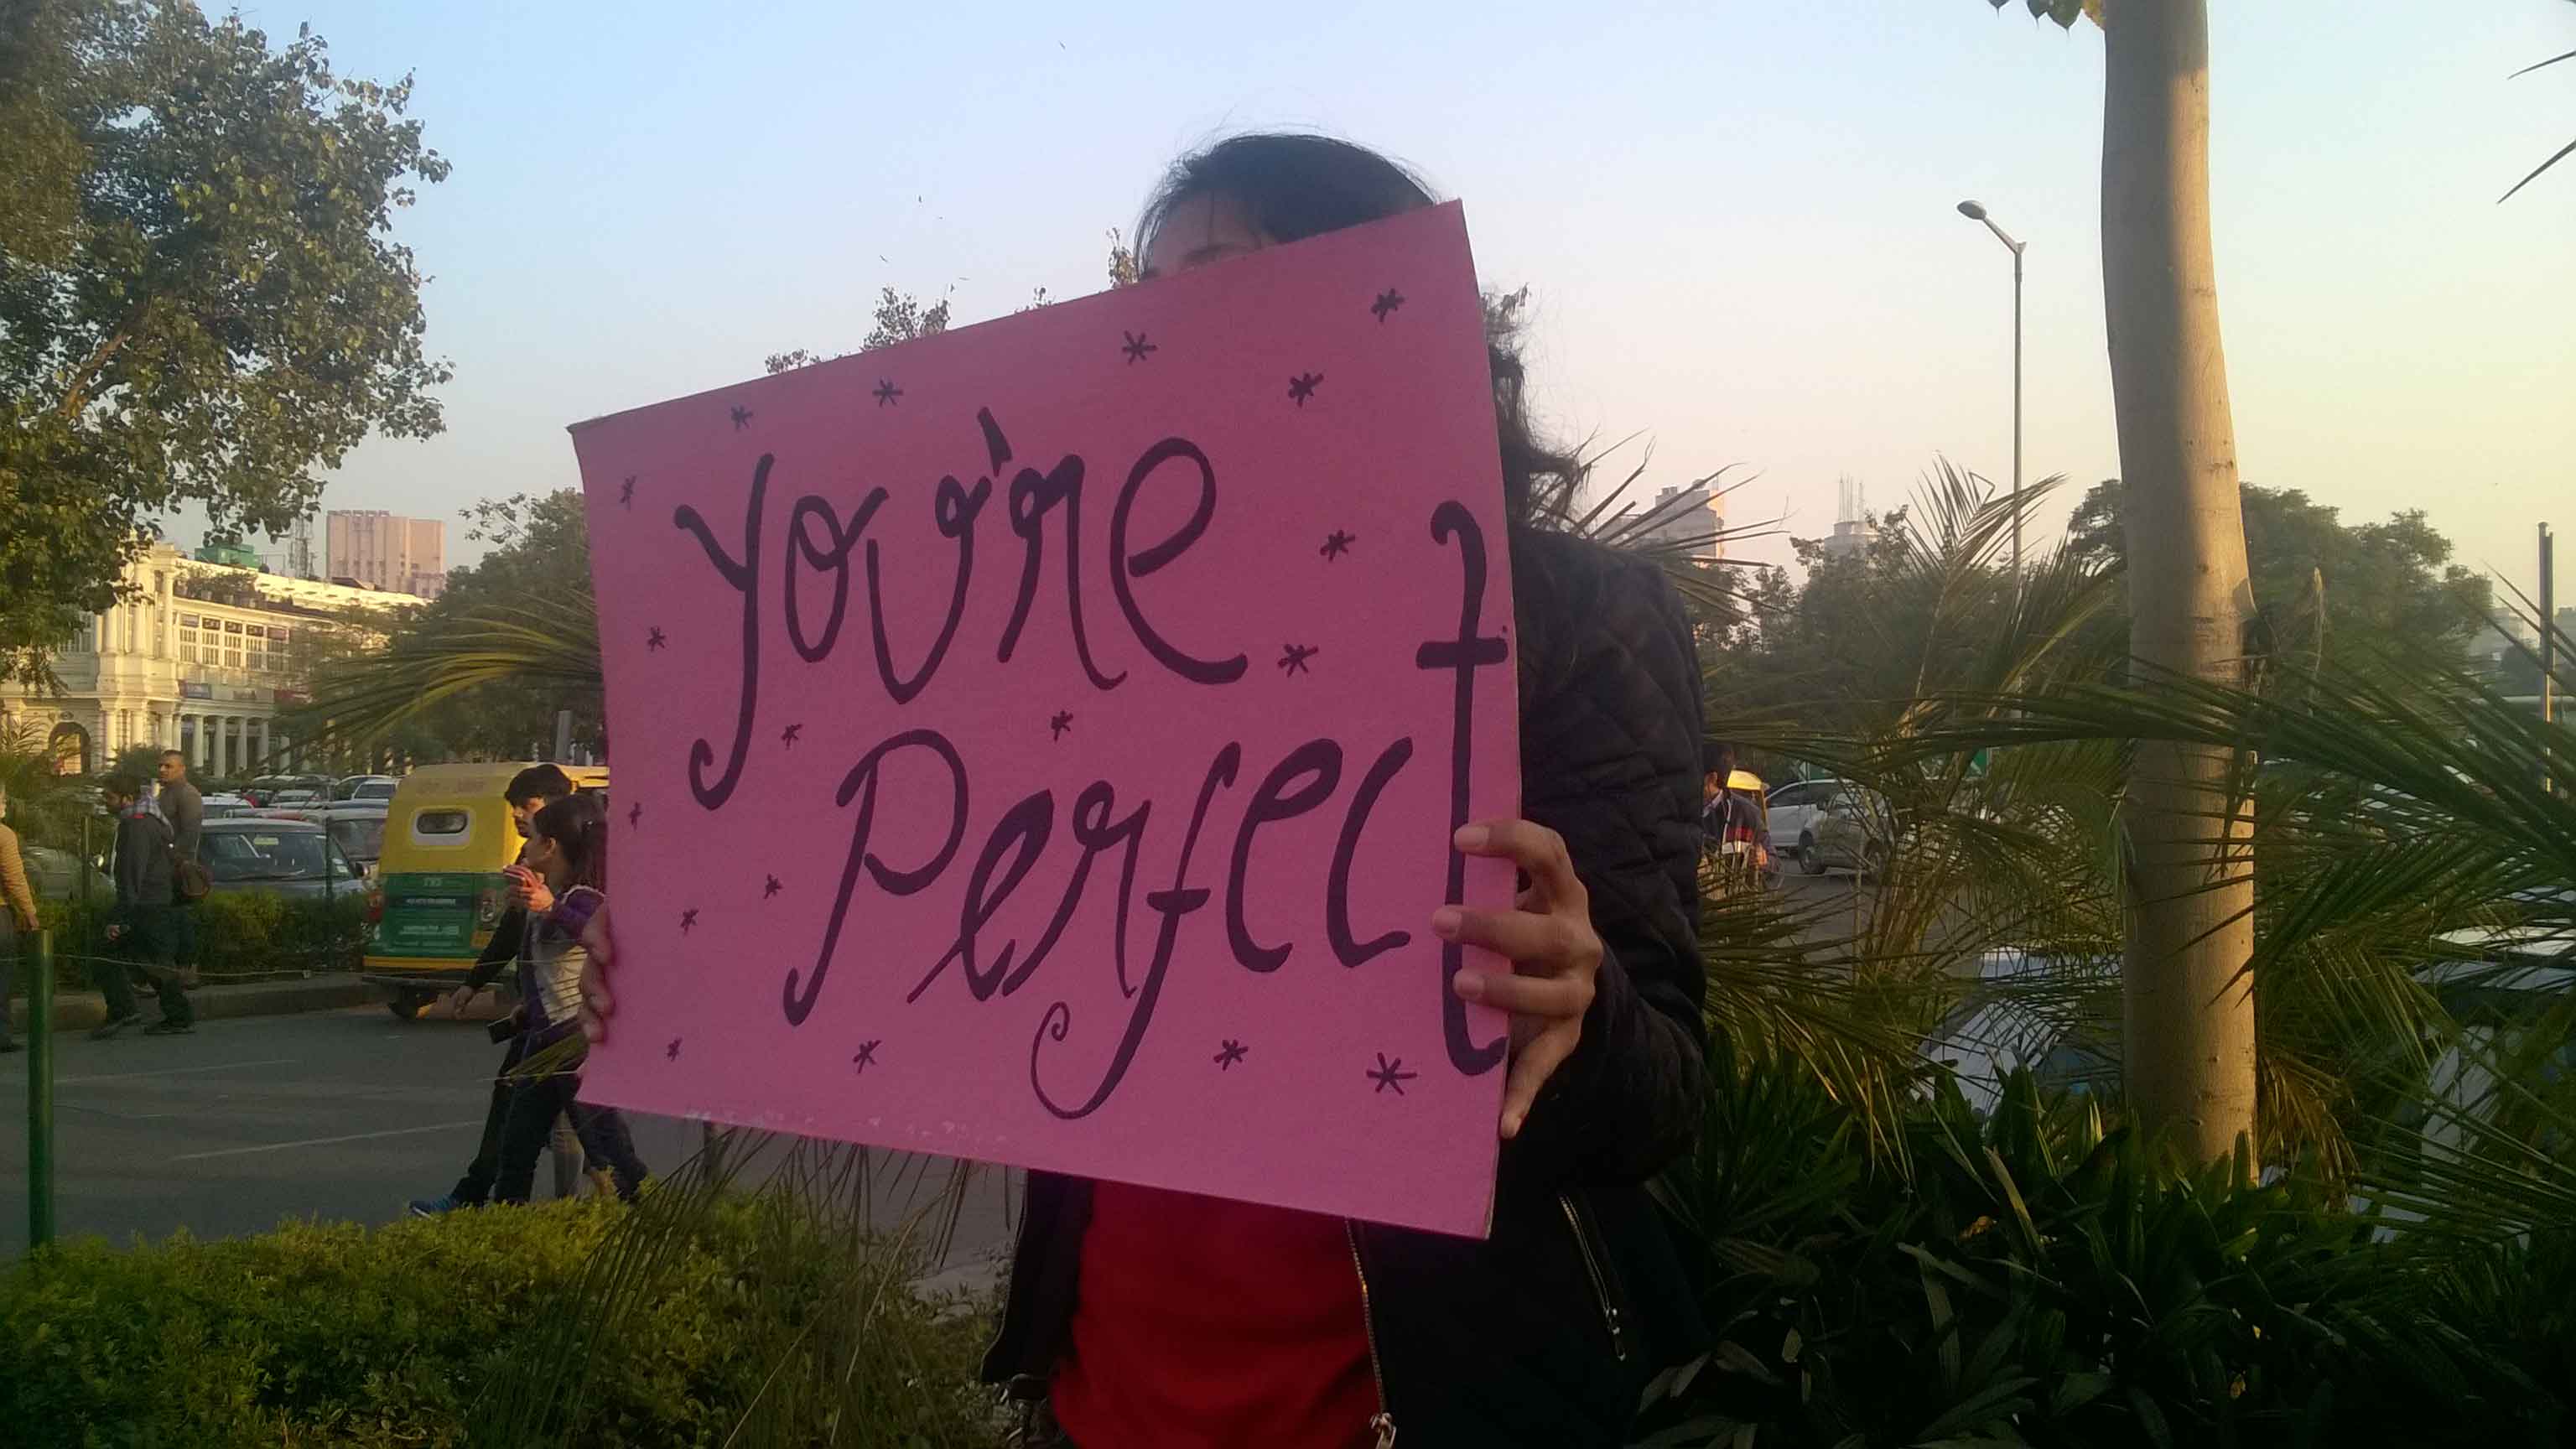 you're
Perfect